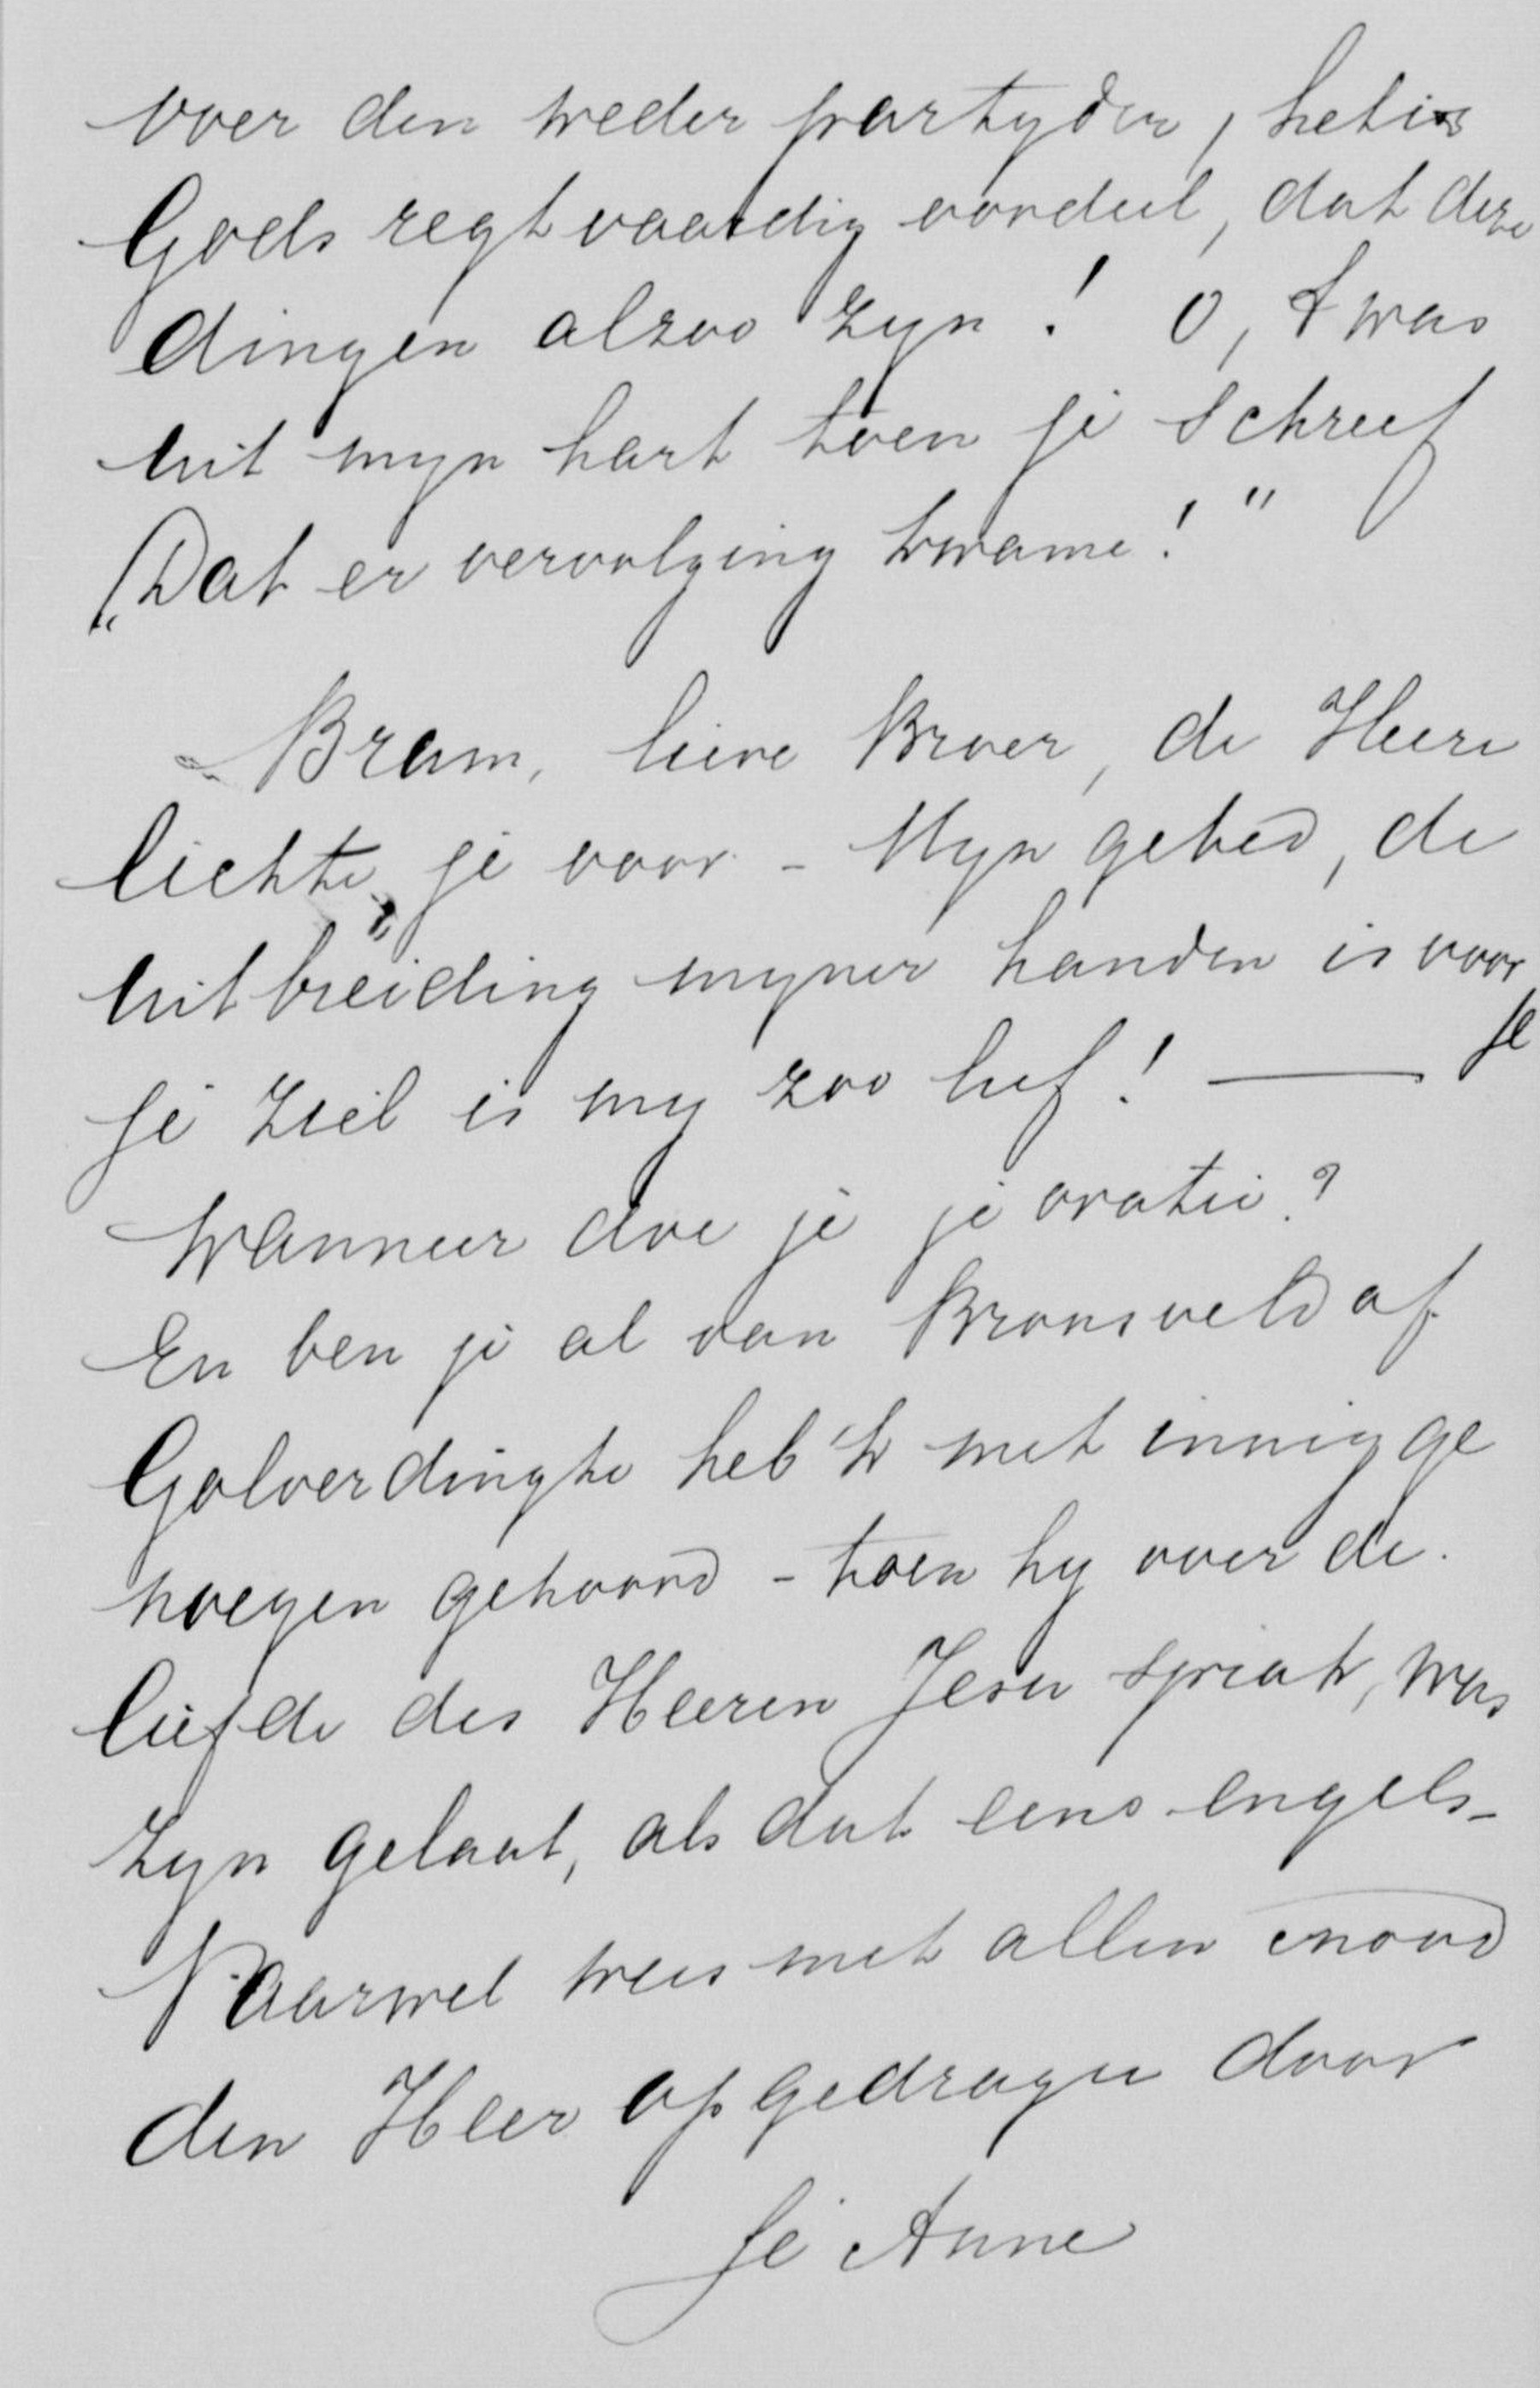 over den weder partyder, het is
Gods regtvaardig oordeel, dat deze
dingen alzoo zyn! O, t was
uit myn hart toen je schreef
„Dat er vervolging kwame!"
Bram, lieve Broer, de Heere
lichte je voor - Myn gebed, de
uitbreiding myner handen is voor
je
je ziel is my zoo lief! —
Wanneer doe je je oratie?
En ben je al van Bronsveld af
Golverdingke heb 'k met innig ge
noegen gehoord - toen hy over de
liefde des Heeren Jesu sprak, was
zyn gelaat, als dat eens engels -
Vaarwel wees met allen
den Heer opgedragen door
Je Anne